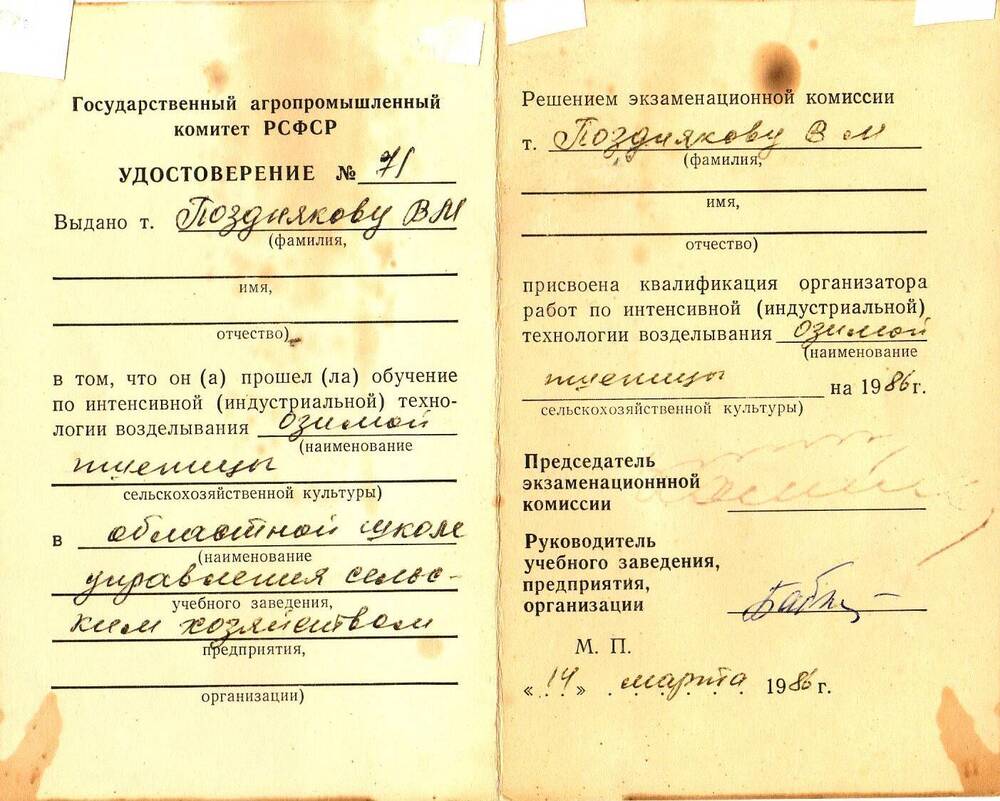 Государственный агропромышленный
комитет РСФСР
УДОСТОВЕРЕНИЕ № 71
Выдано т. Позднякову В М
(фамилия,
имя,
отчество)
в том, что он (а) прошел (ла) обучение
по интенсивной (индустриальной) техно-
логии возделывания озимой
(наименование
пшеницы
сельскохозяйственной культуры)
в областной школе
(наименование
управления сельс-
учебного заведения,
ким хозяйством
предприятия,
организации)
Решением экзаменационной комиссии
т. Позднякову В М
(фамилия,
имя,
отчество)
присвоена квалификация организатора
работ по интенсивной (индустриальной)
технологии возделывания озимой
(наименование
пшеницы на 1986 г.
сельскохозяйственной культуры)
Председатель
экзаменационнной
комиссии
Руководитель
учебного заведения,
предприятия,
организации
М. П.
«14» марта 1986 г.